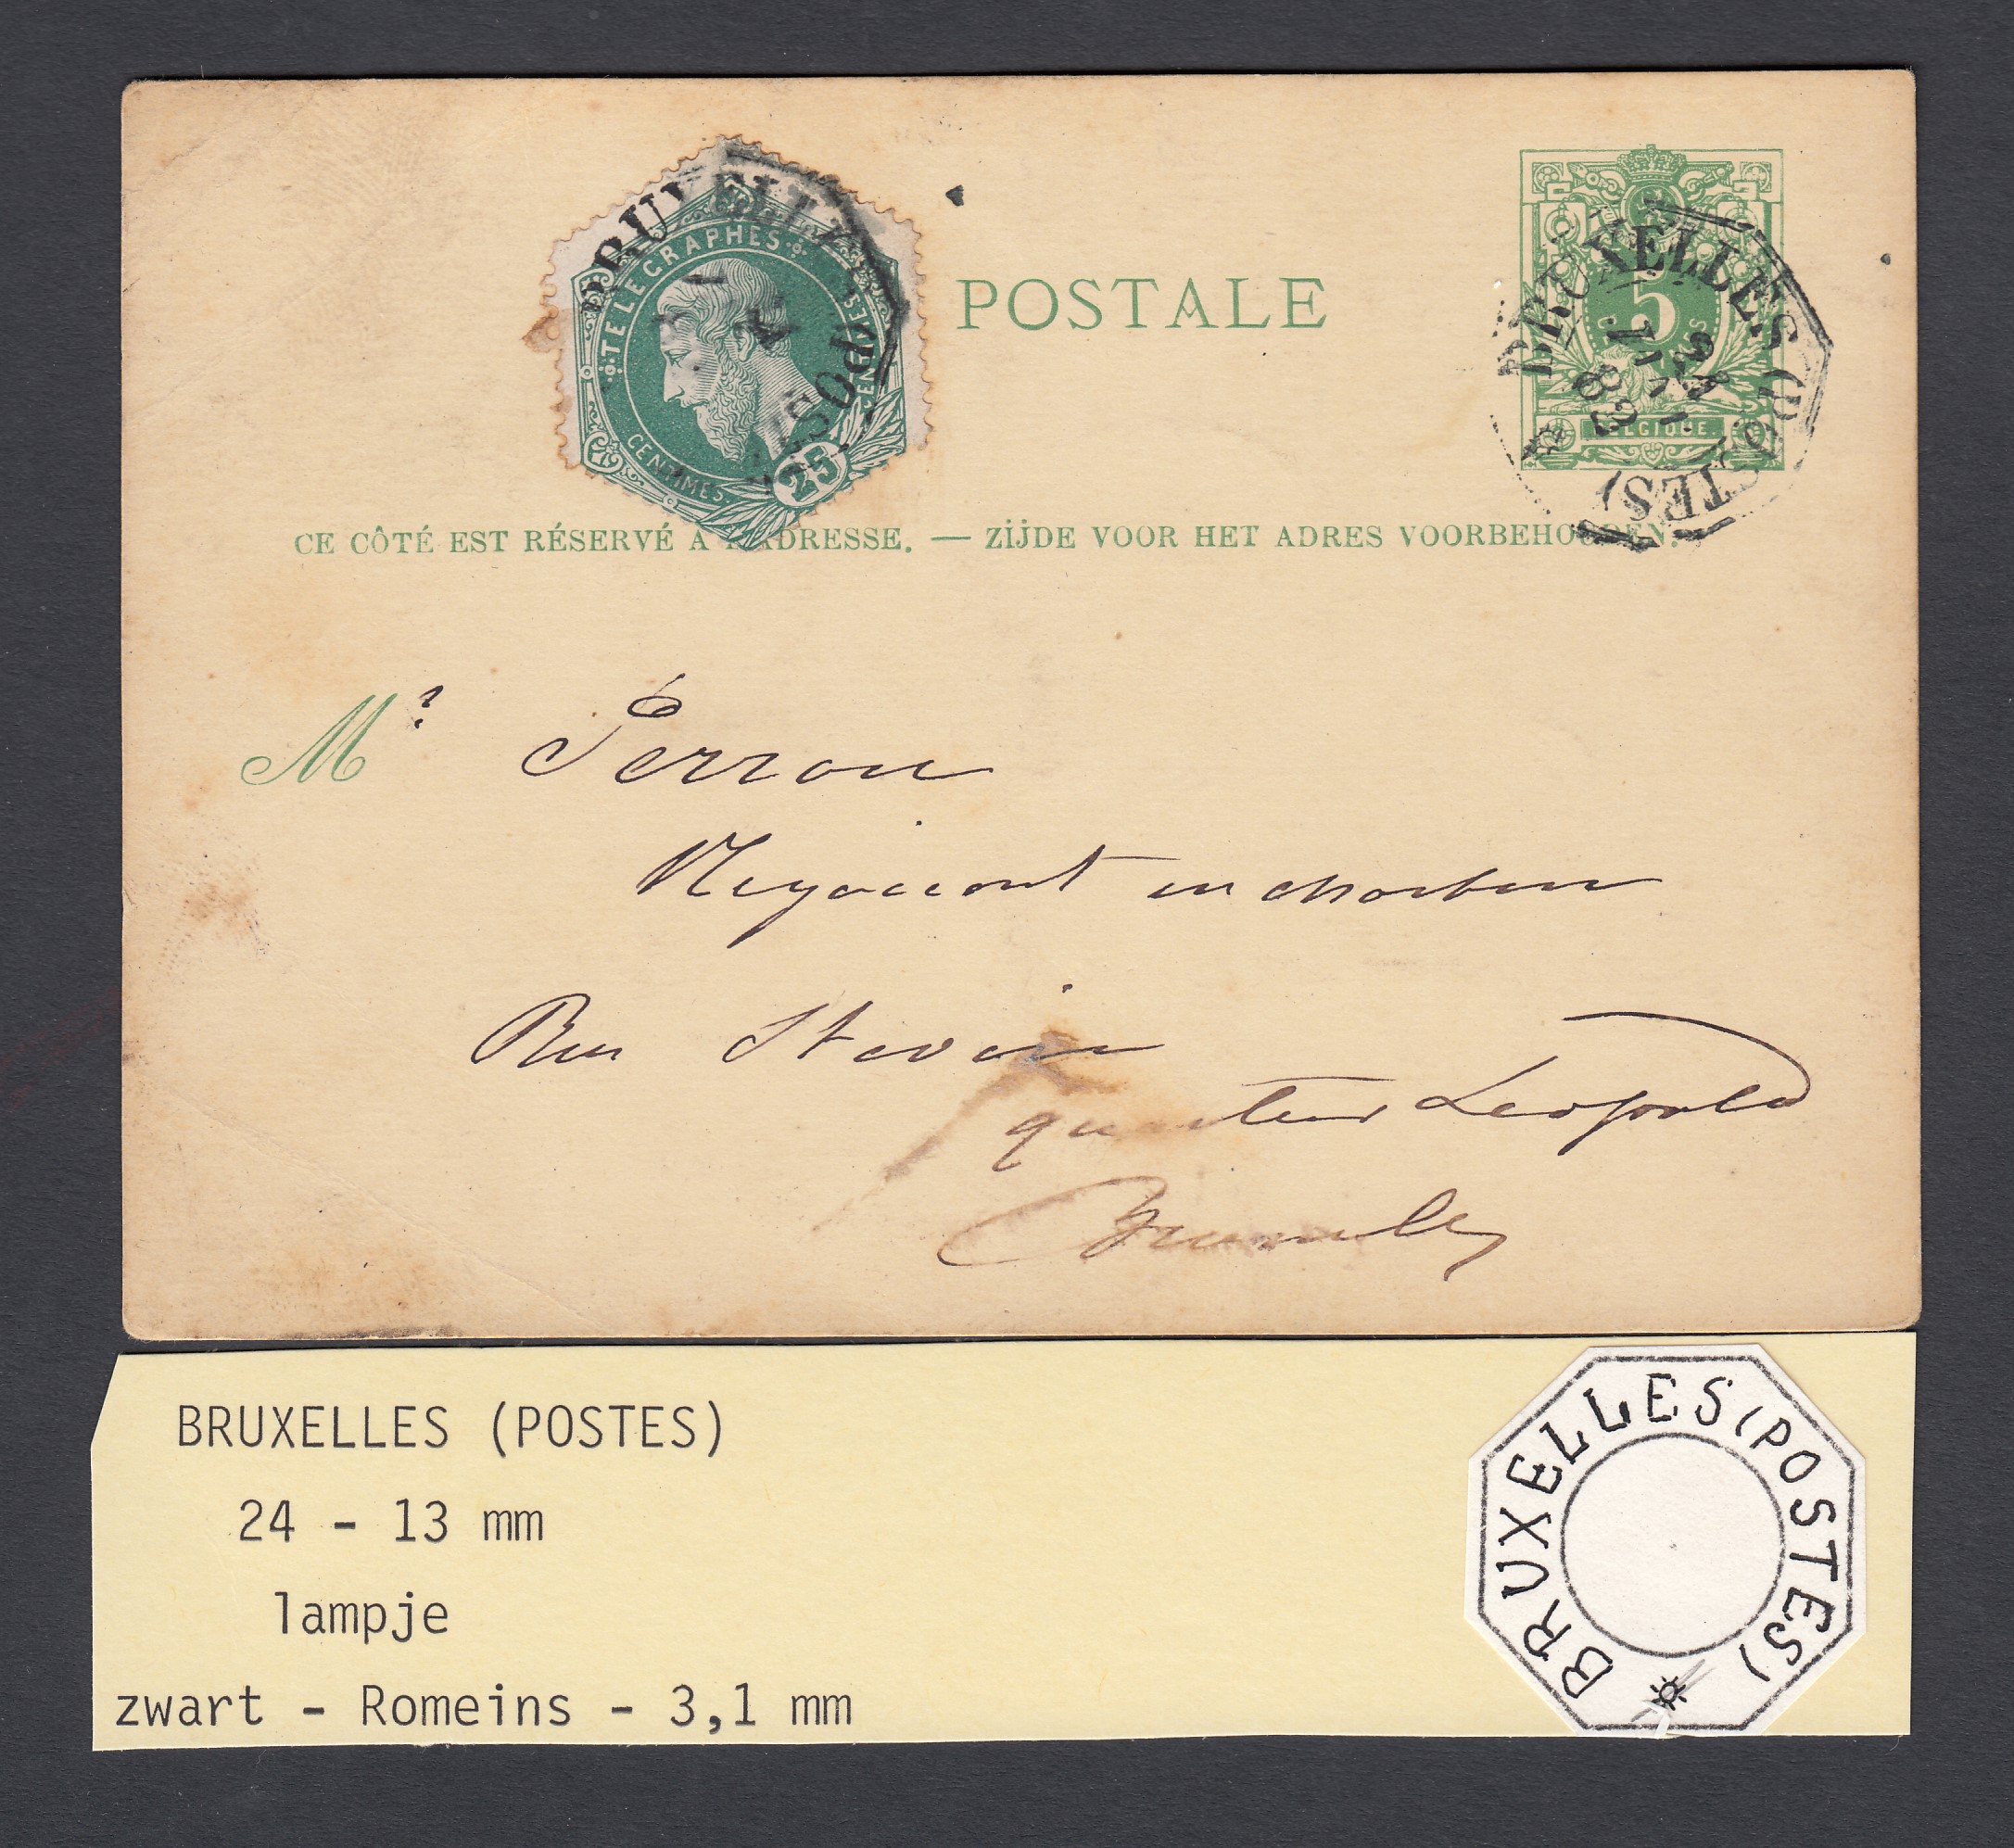 TELEGRAPHES
CENTIMES
25
CENTIMES
BRUXELLES (POSTES)
POSTALE
5
BELGIQUE.
BRUXELLES (POSTES)
83
CE CÔTÉ EST RÉSERVÉ A L'ADRESSE. — ZIJDE VOOR HET ADRES VOORBEHOUDEN.
Mr Perron
Negociant en charbon
Rue Stevin
quartier Leopold
Bruxelles
BRUXELLES (POSTES)
24 - 13 mm
lampje
zwart - Romeins - 3,1 mm
BRUXELLES (POSTES)